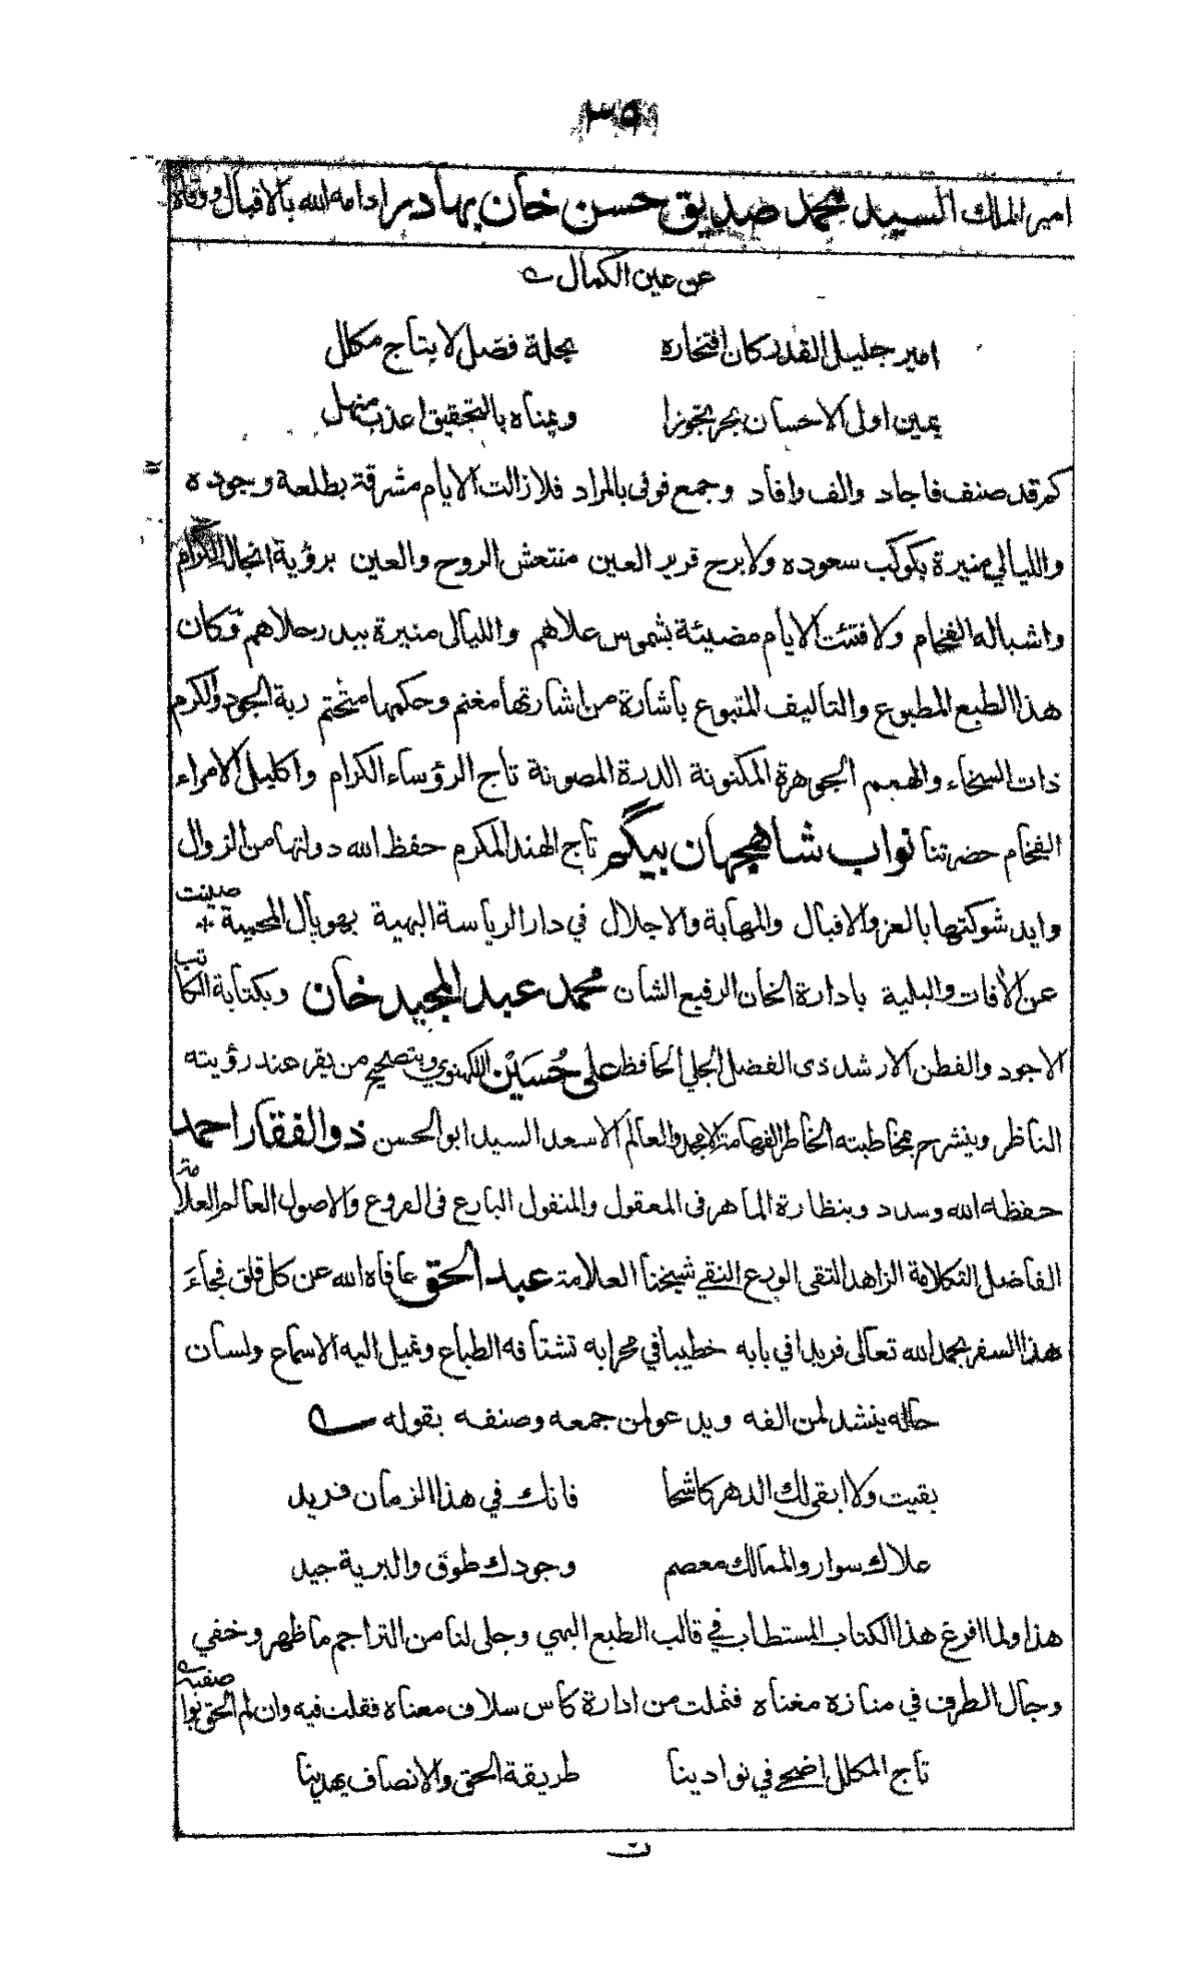 امير الملك السيد محمد صديق حسن خان بهادر ادامه الله بالاقبال ووقاه
عن عين الكمال
امير جليل القدر كان افتخاره بحلة فضل لا بتاج مكلل
يمين اولى الاحسان بحر تجوزا ويمناه بالتحقيق اعذب منهل
كم قد صنف فاجاد والف وافاد وجمع فوفى بالمراد فلا زالت الايام مشرقة بطلعة وجوده
والليالي منيرة بكوكب سعوده ولا برح قرير العين منتعش الروح والعين برؤية انجاله الكرام
واشباله الفخام ولا فتئت الايام مضيئة بشموس علاهم والليالى منيرة ببدر حلاهم وكان
هذا الطبع المطبوع والتاليف المتبوع بأشارة من اشارتها مغنم وحكمها متحتم ربة الجود والكرم
ذات السخاء والهمم الجوهرة المكنونة الدرة المصونة تاج الرؤساء الكرام واكليل الامراء
الفخام حضرتنا نواب شاهجهان بيگم تاج الهند المكرم حفظ الله دولتها من الزوال
وايد شوكتها بالعز والاقبال والمهابة والاجلال في دار الرياسة البهية بهوپال المحمية صينت
عن الأفات والبلية بادارة الخان الرفيع الشان محمد عبد المجيد خان وبكتابة الكاتب
الاجود والفطن الارشد ذى الفضل الجلي الحافظ على حُسَيْن اللكهنوي وبتصحيح من يقر عند رؤيته
الناظر وينشرح بمخاطبته الخاطر الفهامة الامجد والعالم الاسعد السيد ابو الحسن ذو الفقار احمد
حفظه الله وسدد وبنظارة الماهر فى المعقول والمنقول البارع فى الفروع والاصول العالم العلامة
الفاضل التكلامة الزاهد التقى الورع النقي شيخنا العلامة عبد الحق عافاه الله عن كل قلق فجاءَ
هذا السفر بحمد الله تعالى فريدا في بابه خطيبا في محرابه تشتاقه الطباع وتميل اليه الاسماع ولسان
حاله ينشد لمن الفه ويدعو لمن جمعه وصنفه بقوله
بقيت ولا ابقى لك الدهر كاشحا فانك في هذا الزمان فريد
علاك سوار والممالك معصم وجودك طوق والبرية جيد
هذا ولما افرغ هذا الكتاب المستطاب في قالب الطبع البهي وجلى لنا من التراجم ما ظهر وخفي
وجال الطرف في منازه مغناه فثملت من ادارة كأس سلاف معناه فقلت فيه وان لم الحق بواصفيه
تاج المكلل اضحى في نوادينا طريقة الحق والانصاف يهدينا